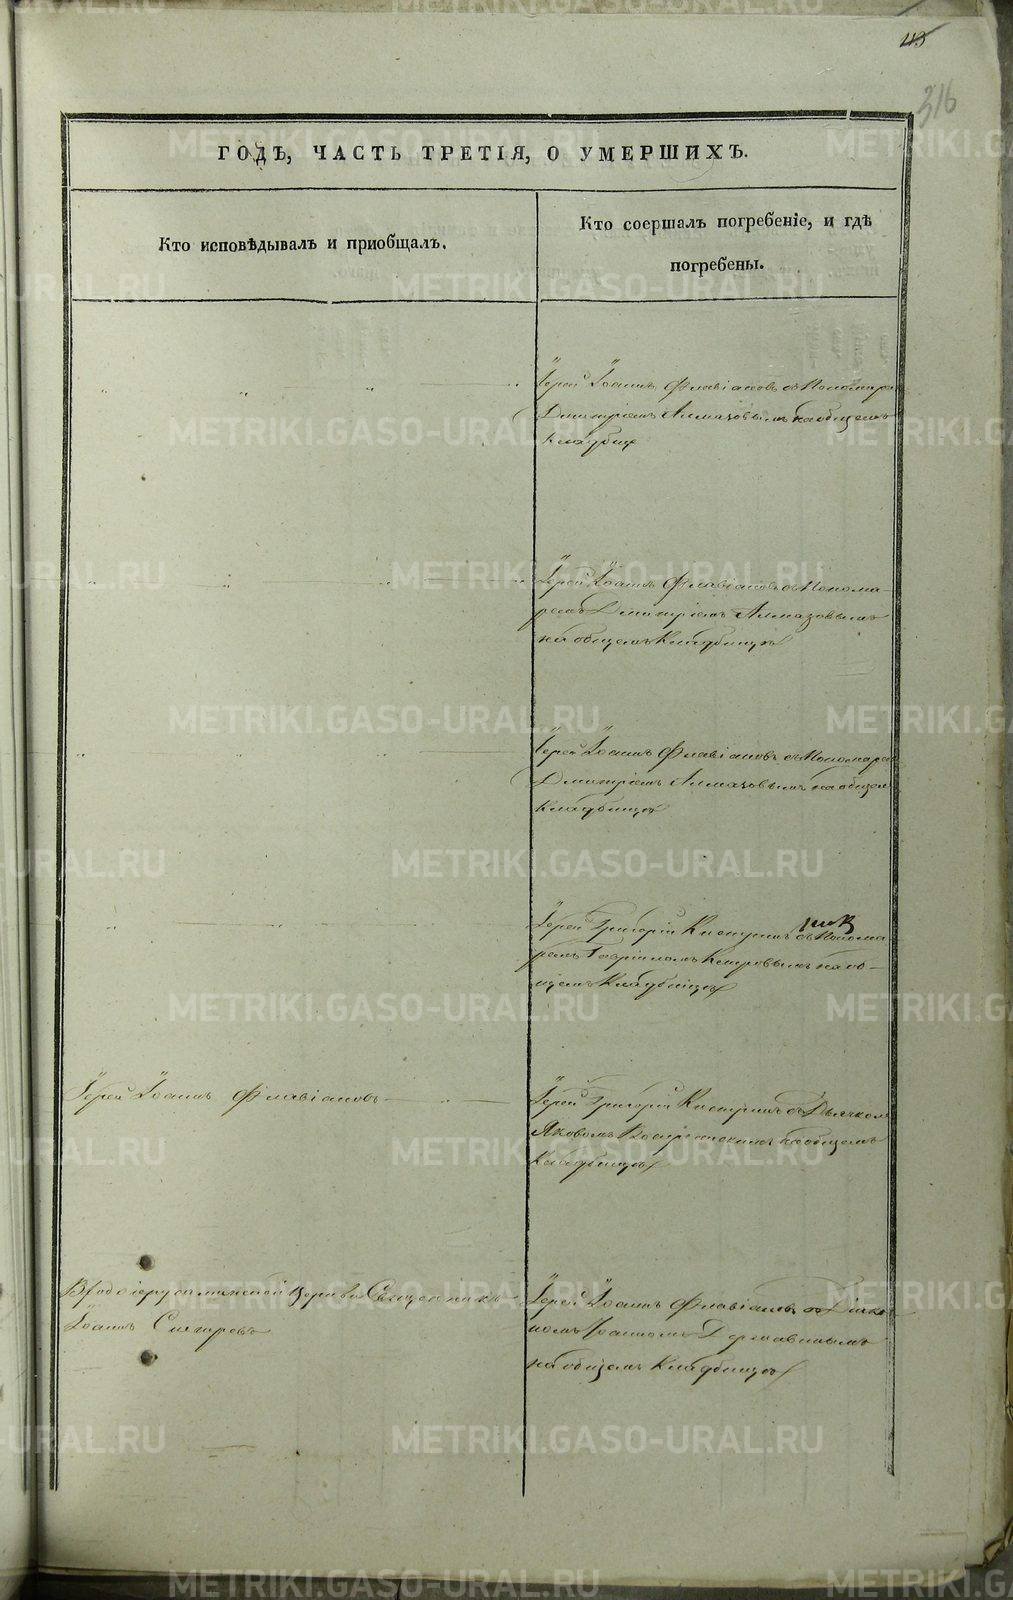 43
316
ГОДЪ, ЧАСТЬ ТРЕТІЯ, О УМЕРШИХЪ.
Кто исповѣдывалъ и пріобщалъ.
Кто соершалъ погребеніе, и гдѣ
погребены.
Іерей Іоаннъ Флавіановъ съ Пономаре
Дмитріемъ Алмазовымъ на общемъ
Кладбищѣ
Іерей Іоаннъ Флавіановъ съ Понома-
ремъ Дмитріемъ Алмазовымъ
на общемъ Кладбищѣ
Іерей Іоаннъ Флавіановъ съ Пономаре
Дмитріемъ Алмазовымъ на общем
Кладбищѣ
Іерей Григорій съ Понома
ремъ Гавріиломъ на об-
щемъ Кладбищѣ
Іерей Іоаннъ Флавіановъ
Іерей Григорій съ Дьячком
Яковомъ на общемъ
Кладбищѣ
Входоіерусалимской Церкви Священникъ
Іоаннъ
Іерей Іоаннъ Флавіановъ съ Діако
номъ Іоанномъ Державинымъ
на общемъ Кладбищѣ
METRIKI.GASO-URAL.RU